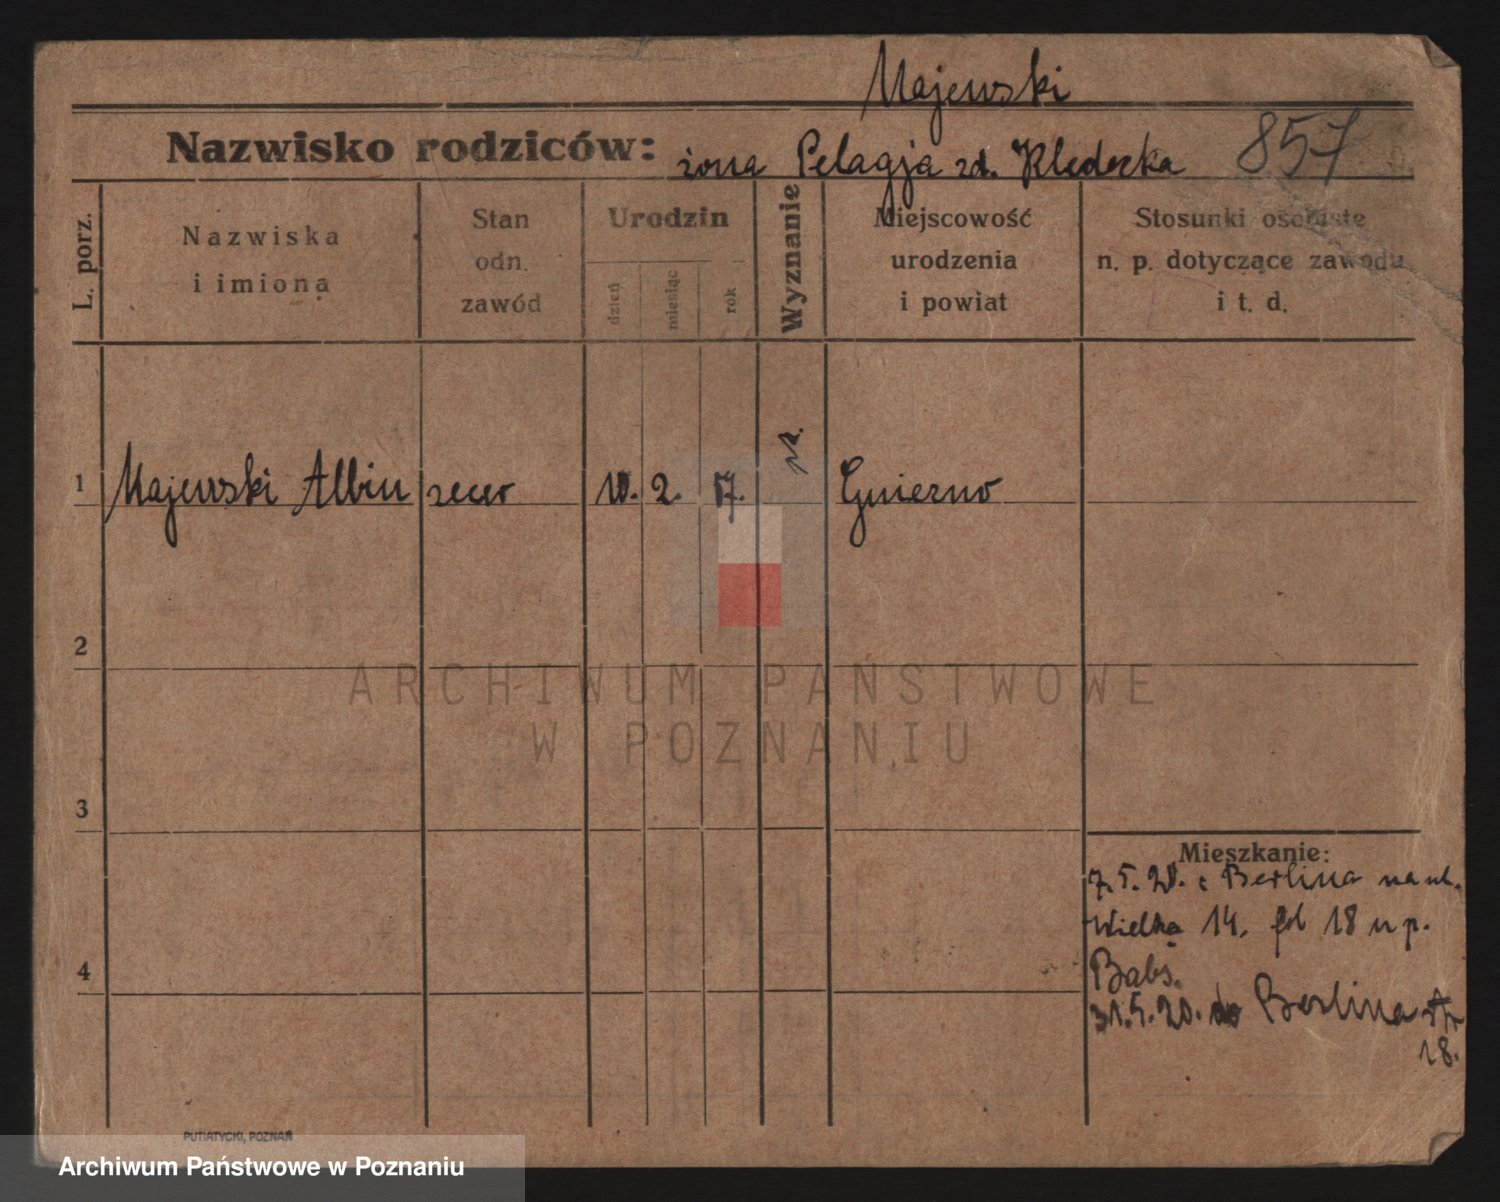 Majewski
Nazwisko rodziców: żona Pelagja zd. Kledecka 857
L. porz.
Nazwiska
i imiona
Stan
odn.
zawód
Urodzin
dzień
miesiąc
rok
Wyznanie
Miejscowość
urodzenia
i powiat
Stosunki osobiste
n. p. dotyczące zawodu
i t. d.
1 Majewski Albin zecer 2. Gniezno
2
3
4
Mieszkanie:
7.5.20. z Berlina na ul.
Wielka 14. 18 u p.
Babs.
31.5.20. do Berlina
18.
PUTIATYCKI, POZNAŃ
ARCHIWUM PAŃSTWOWE
W POZNANIU
Archiwum Państwowe w Poznaniu